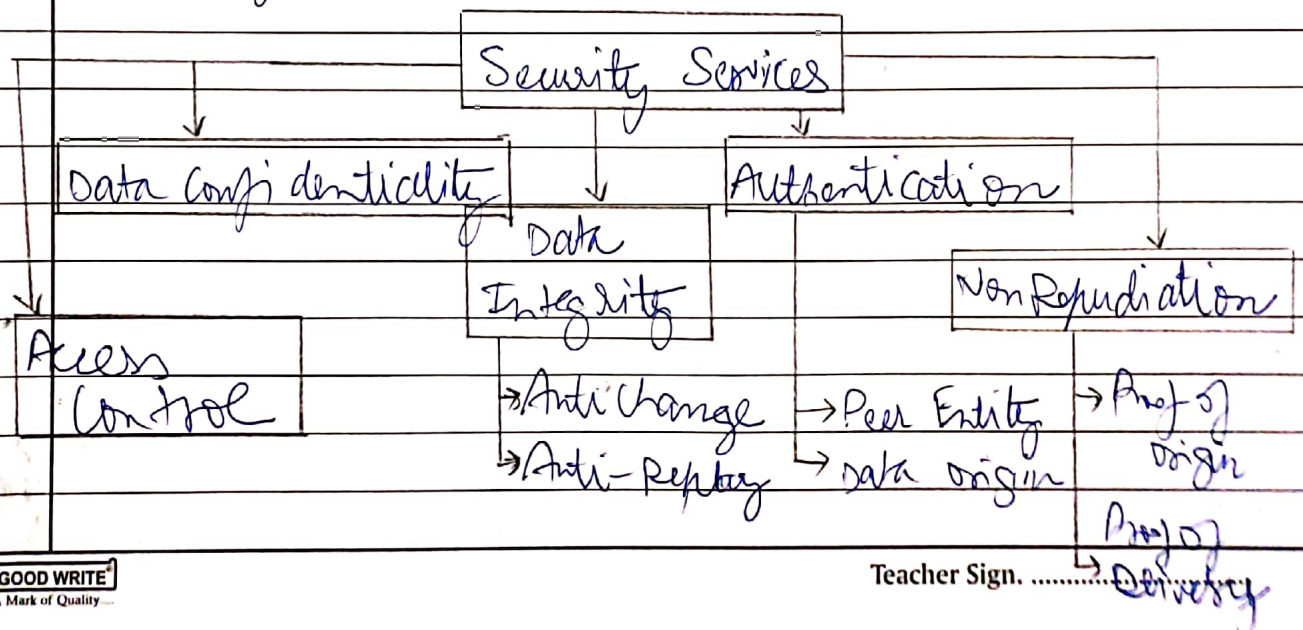 Security Services
Data Confidenticility
Authentication
Data
Integrity
Non Repudiation
Access
Control
Anti Change
Anti-Replay
Peer Entity
Data origin
Proof of
origin
Proof of
Delivery
GOOD WRITE
Mark of Quality
Teacher Sign.